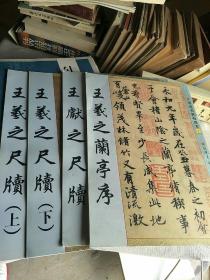 永和九年歲在癸丑暮春之初會
于會稽山陰之蘭亭脩稧事
也羣賢畢至少長咸集此地
有峻領茂林脩竹又有清流激
王羲之蘭亭序
王献之尺牘
王羲之尺牘（下）
王羲之尺牘（上）